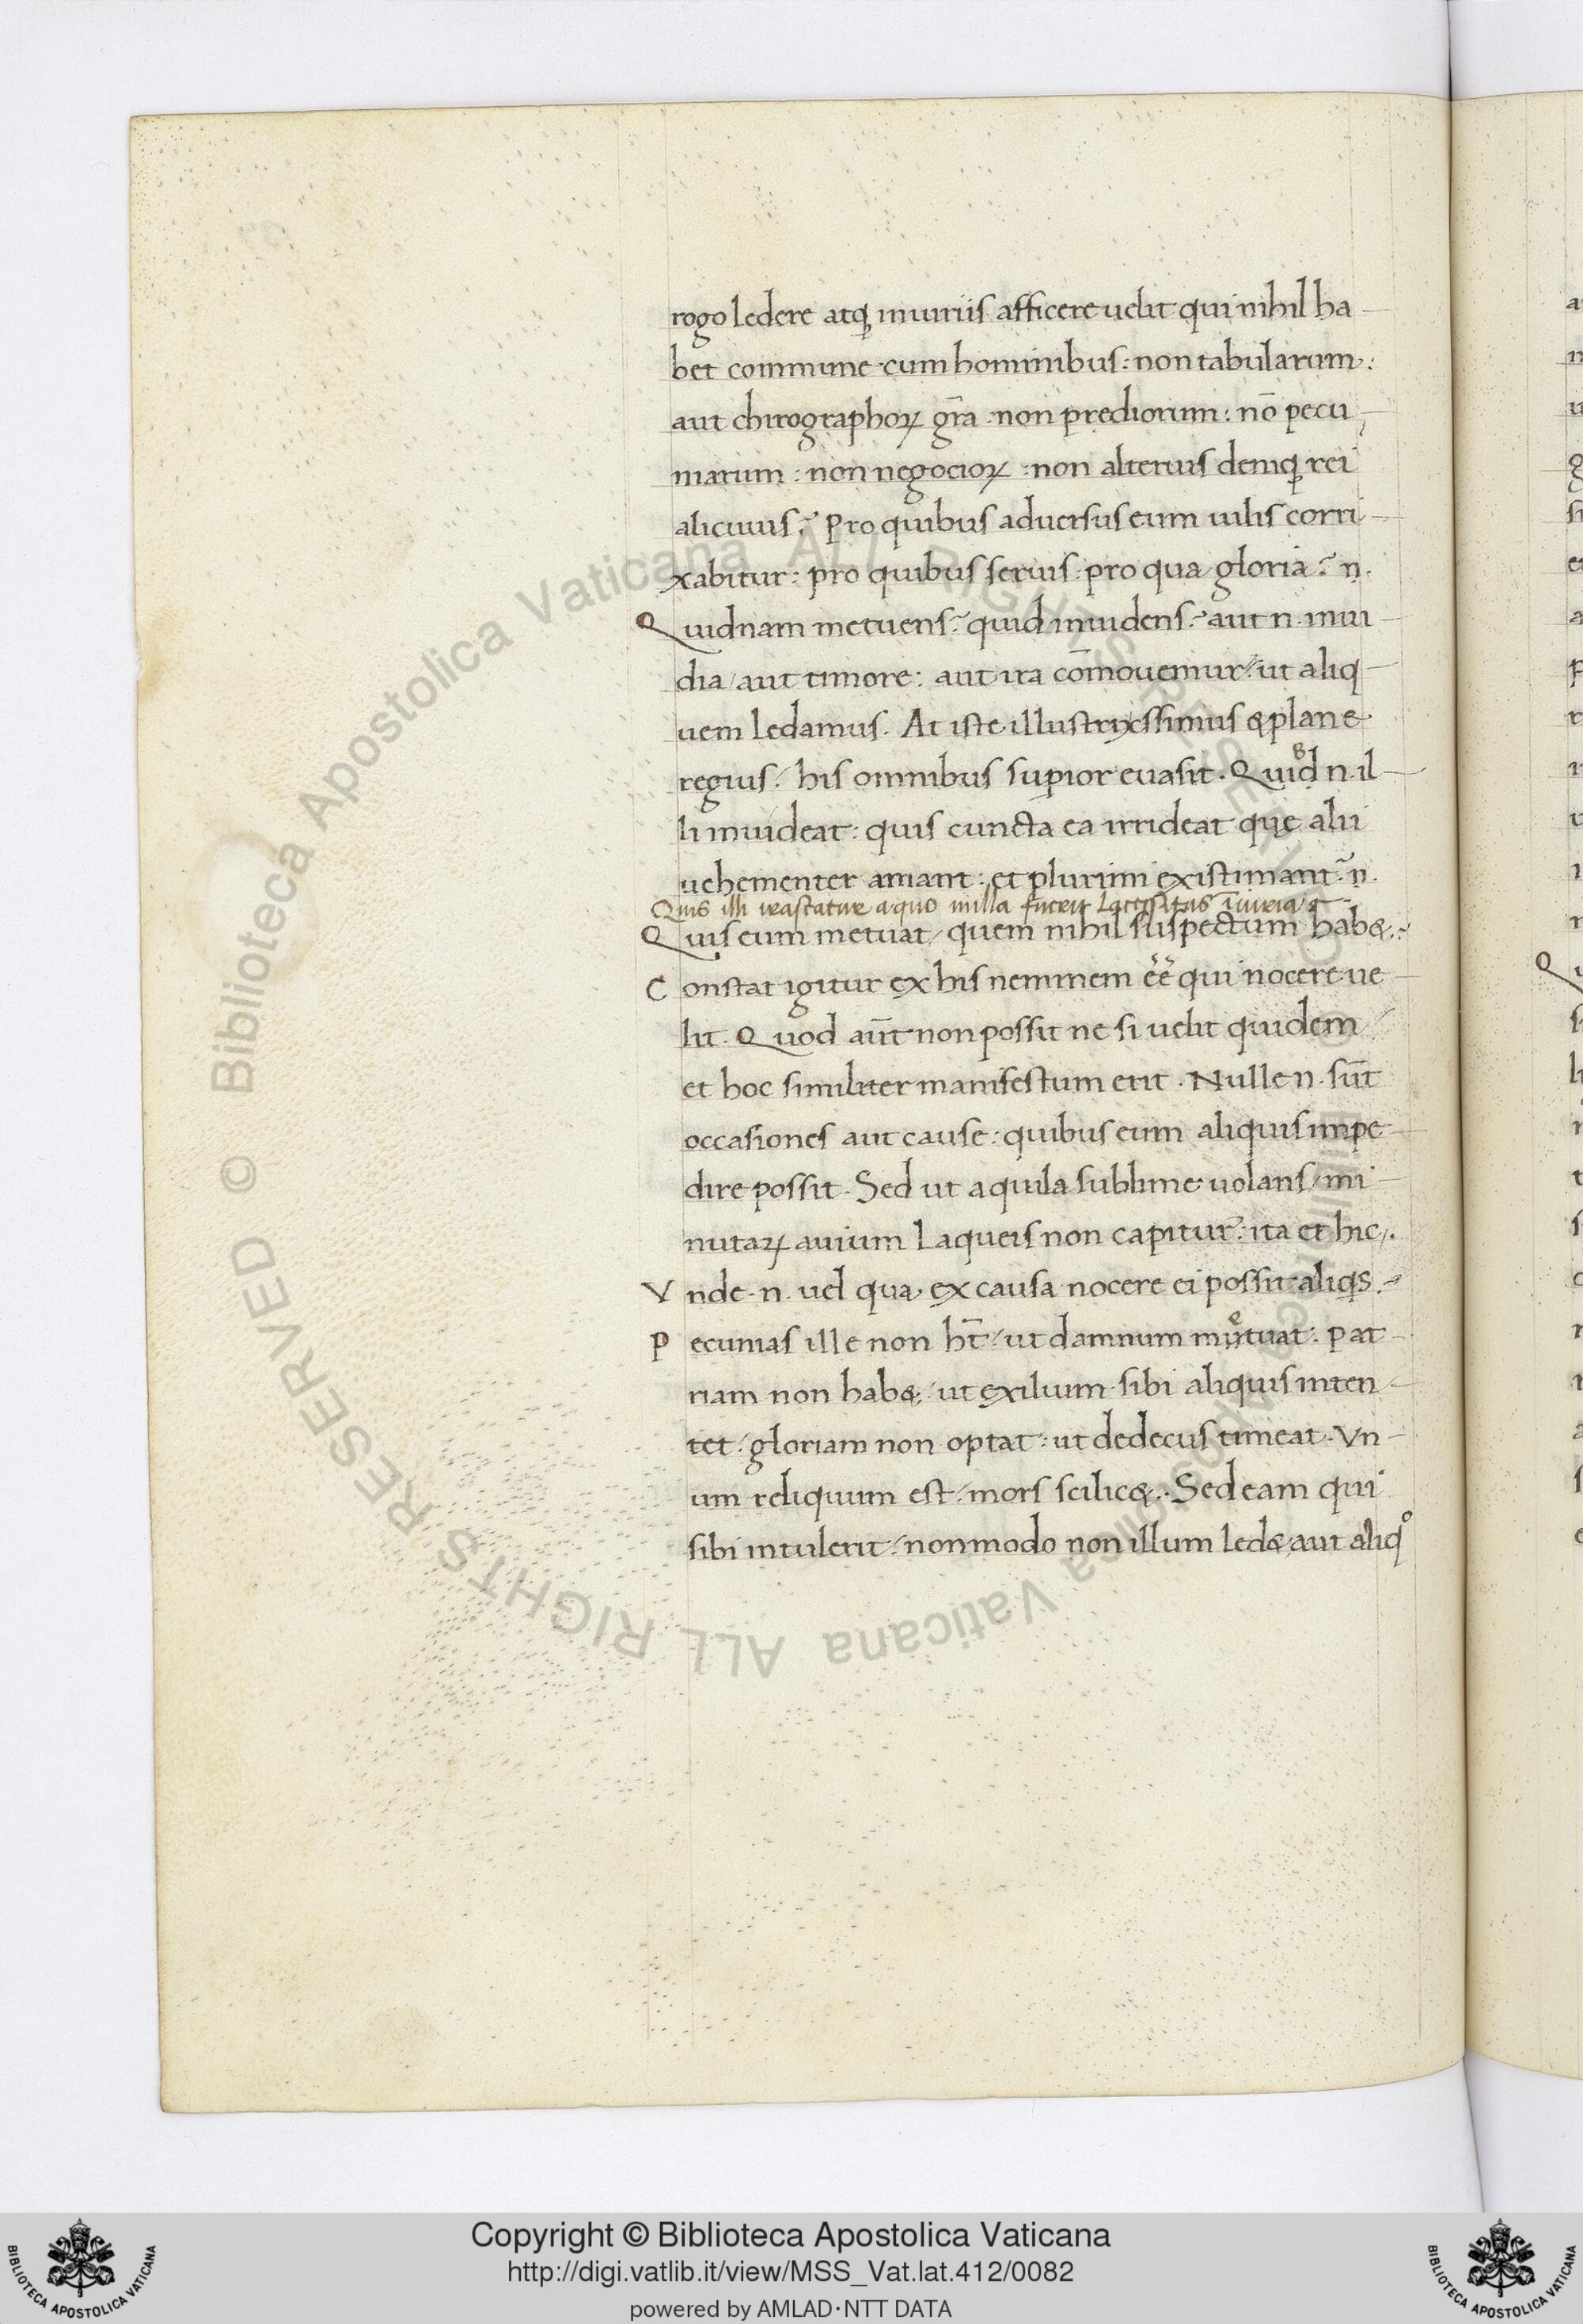 rogo ledere atq; iniuriis afficere uelit qui nihil ha
bet commune cum hominibus: non tabularum:
aut chirographoꝝ gr̄a non prediorum: nō pecu
niarum: non negocioꝝ: non alterius deniq; rei
alicuius? Pro quibus aduersus eum uilis corri
xabitur: pro quibus seruis: pro qua gloria? n.
Quidnam metuens? quid inuidens? aut n. inui
dia/ aut timore: aut ira cōmouemur/ ut aliq
uem ledamus. At iste illustrissimus & plane
regius/ his omnibus supior euasit. Quid n. il
li inuideat: quis cuncta ea irrideat que alii
uehementer amant: et plurimi existimant? n.
Quis illi irascatur a quo nulla fuerit lacessitus iniuria?
Quis eum metuat/ quem nihil suspectum hab&?
Constat igitur ex his neminem ēē qui nocere ue
lit. Quod aūt non possit ne si uelit quidem
et hoc similiter manifestum erit. Nulle n. sūt
occasiones aut cause: quibus eum aliquis impe
dire possit. Sed ut aquila sublime uolans/ mi
nutaꝝ auium laqueis non capitur: ita et hic.
Vnde n. uel qua ex causa nocere ei possit aliqs?
Pecunias ille non ht̄/ ut damnum metuat: pat
riam non hab&/ ut exilium sibi aliquis inten
tet/ gloriam non optat: ut dedecus timeat. Vn
um reliquum est/ mors scilic&. Sed eam qui
sibi intulerit/ non modo non illum led& aut aliq°
Copyright © Biblioteca Apostolica Vaticana
http://digi.vatlib.it/view/MSS_Vat.lat.412/0082
powered by AMLAD·NTT DATA
BIBLIOTECA APOSTOLICA VATICANA
BIBLIOTECA APOSTOLICA VATICANA
© Biblioteca Apostolica Vaticana ALL RIGHTS RESERVED © Biblioteca Apostolica Vaticana ALL RIGHTS RESERVED